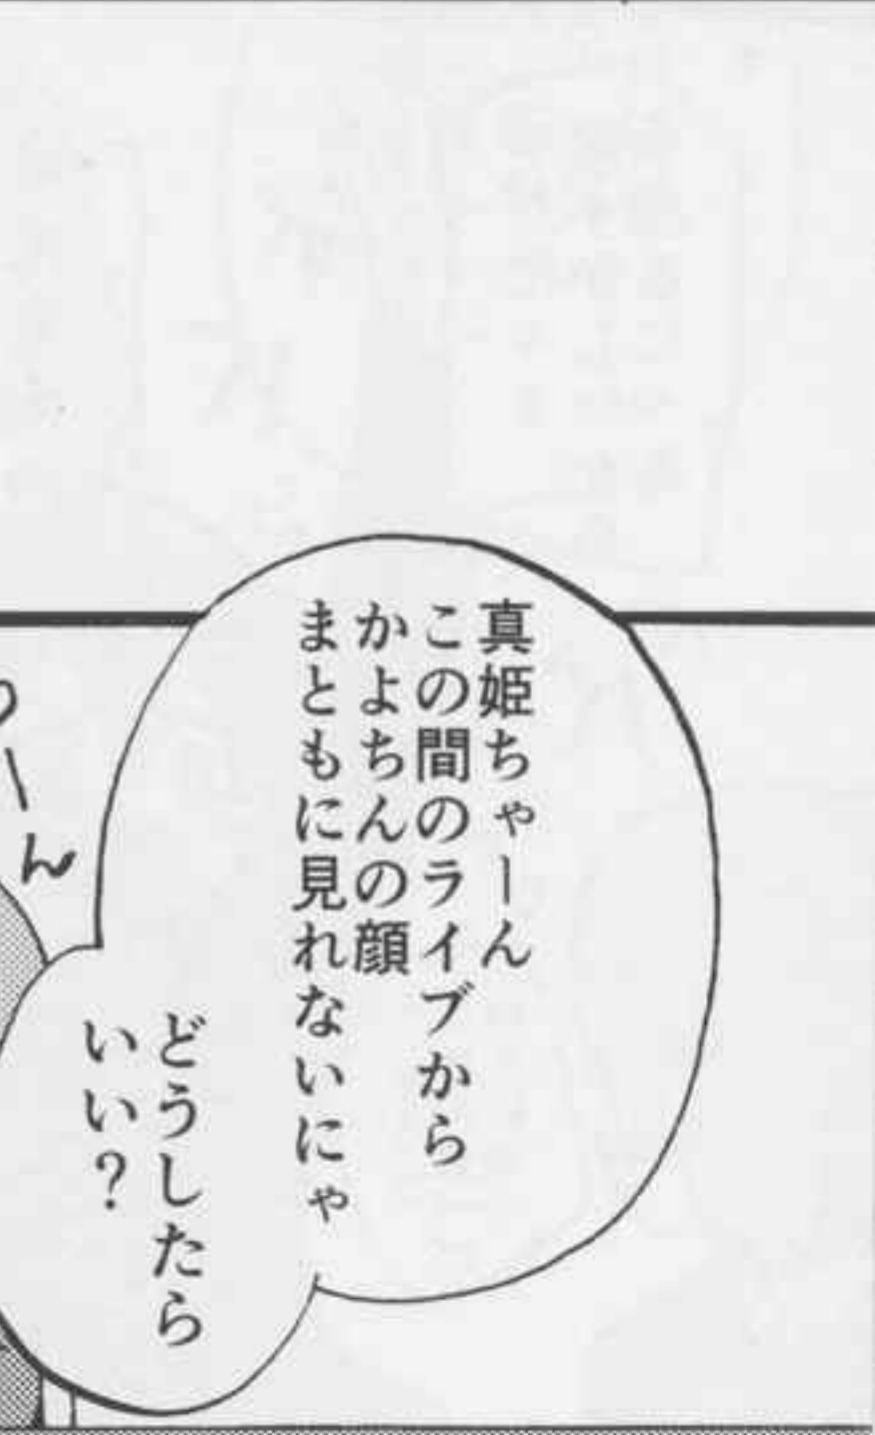 真姫ちゃーん
この間のライブから
かよちんの顔
まともに見れないにゃ
どうしたら
いい？
ーん